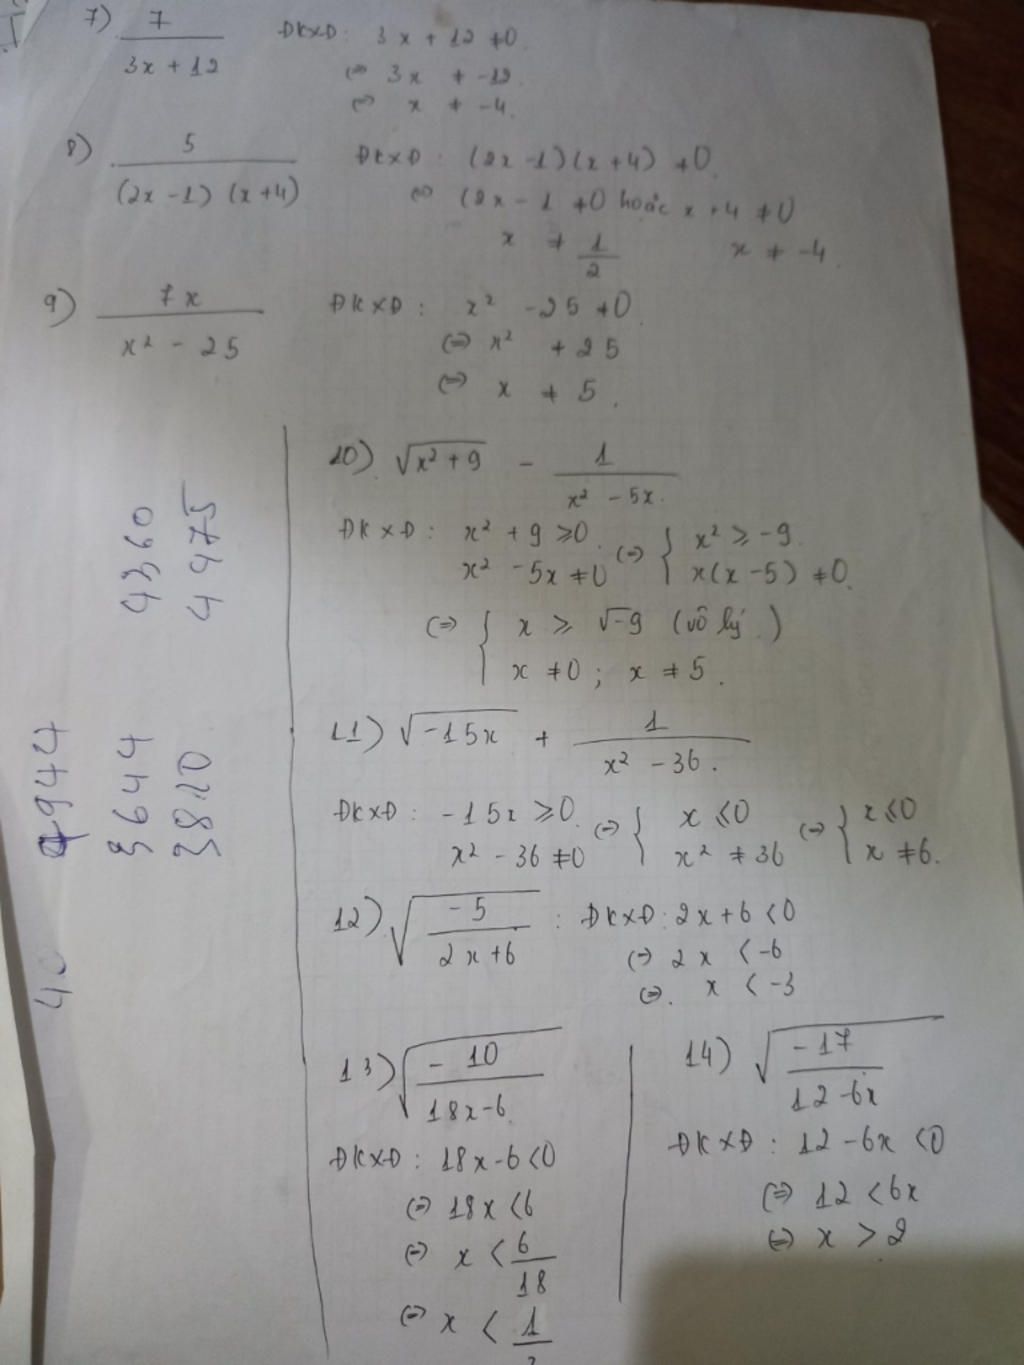 7) 7/(3x + 12) ĐKXĐ: 3x + 12 ≠ 0
⇔ 3x ≠ -12.
⇔ x ≠ -4.
8) 5/((2x - 1) (x + 4)) ĐKXĐ: (2x - 1)(x + 4) ≠ 0.
⇔ (2x - 1 ≠ 0 hoặc x + 4 ≠ 0
x ≠ 1/2 x ≠ -4.
9) 7x/(x² - 25) ĐKXĐ: x² - 25 ≠ 0.
⇔ x² ≠ 25
⇔ x ≠ 5.
10) √(x² + 9) - 1/(x² - 5x.)
ĐKXĐ: x² + 9 ≥ 0. ⇔ { x² ≥ -9.
x² - 5x ≠ 0 x(x - 5) ≠ 0.
⇔ { x ≥ √-9 (vô lý.)
x ≠ 0; x ≠ 5.
11) √(-15x) + 1/(x² - 36.)
ĐKXĐ: -15x ≥ 0. ⇔ { x ≤ 0 ⇔ { x ≤ 0
x² - 36 ≠ 0 x² ≠ 36 x ≠ 6.
12) √(-5/(2x + 6)) : ĐKXĐ: 2x + 6 < 0
⇔ 2x < -6
⇔. x < -3
13) √(-10/(18x - 6.))
ĐKXĐ: 18x - 6 < 0
⇔ 18x < 6
⇔ x < 6/18
⇔ x < 1/3
14) √(-17/(12 - 6x))
ĐKXĐ: 12 - 6x < 0
⇔ 12 < 6x
⇔ x > 2
4360
4475
3644
3810
944
40